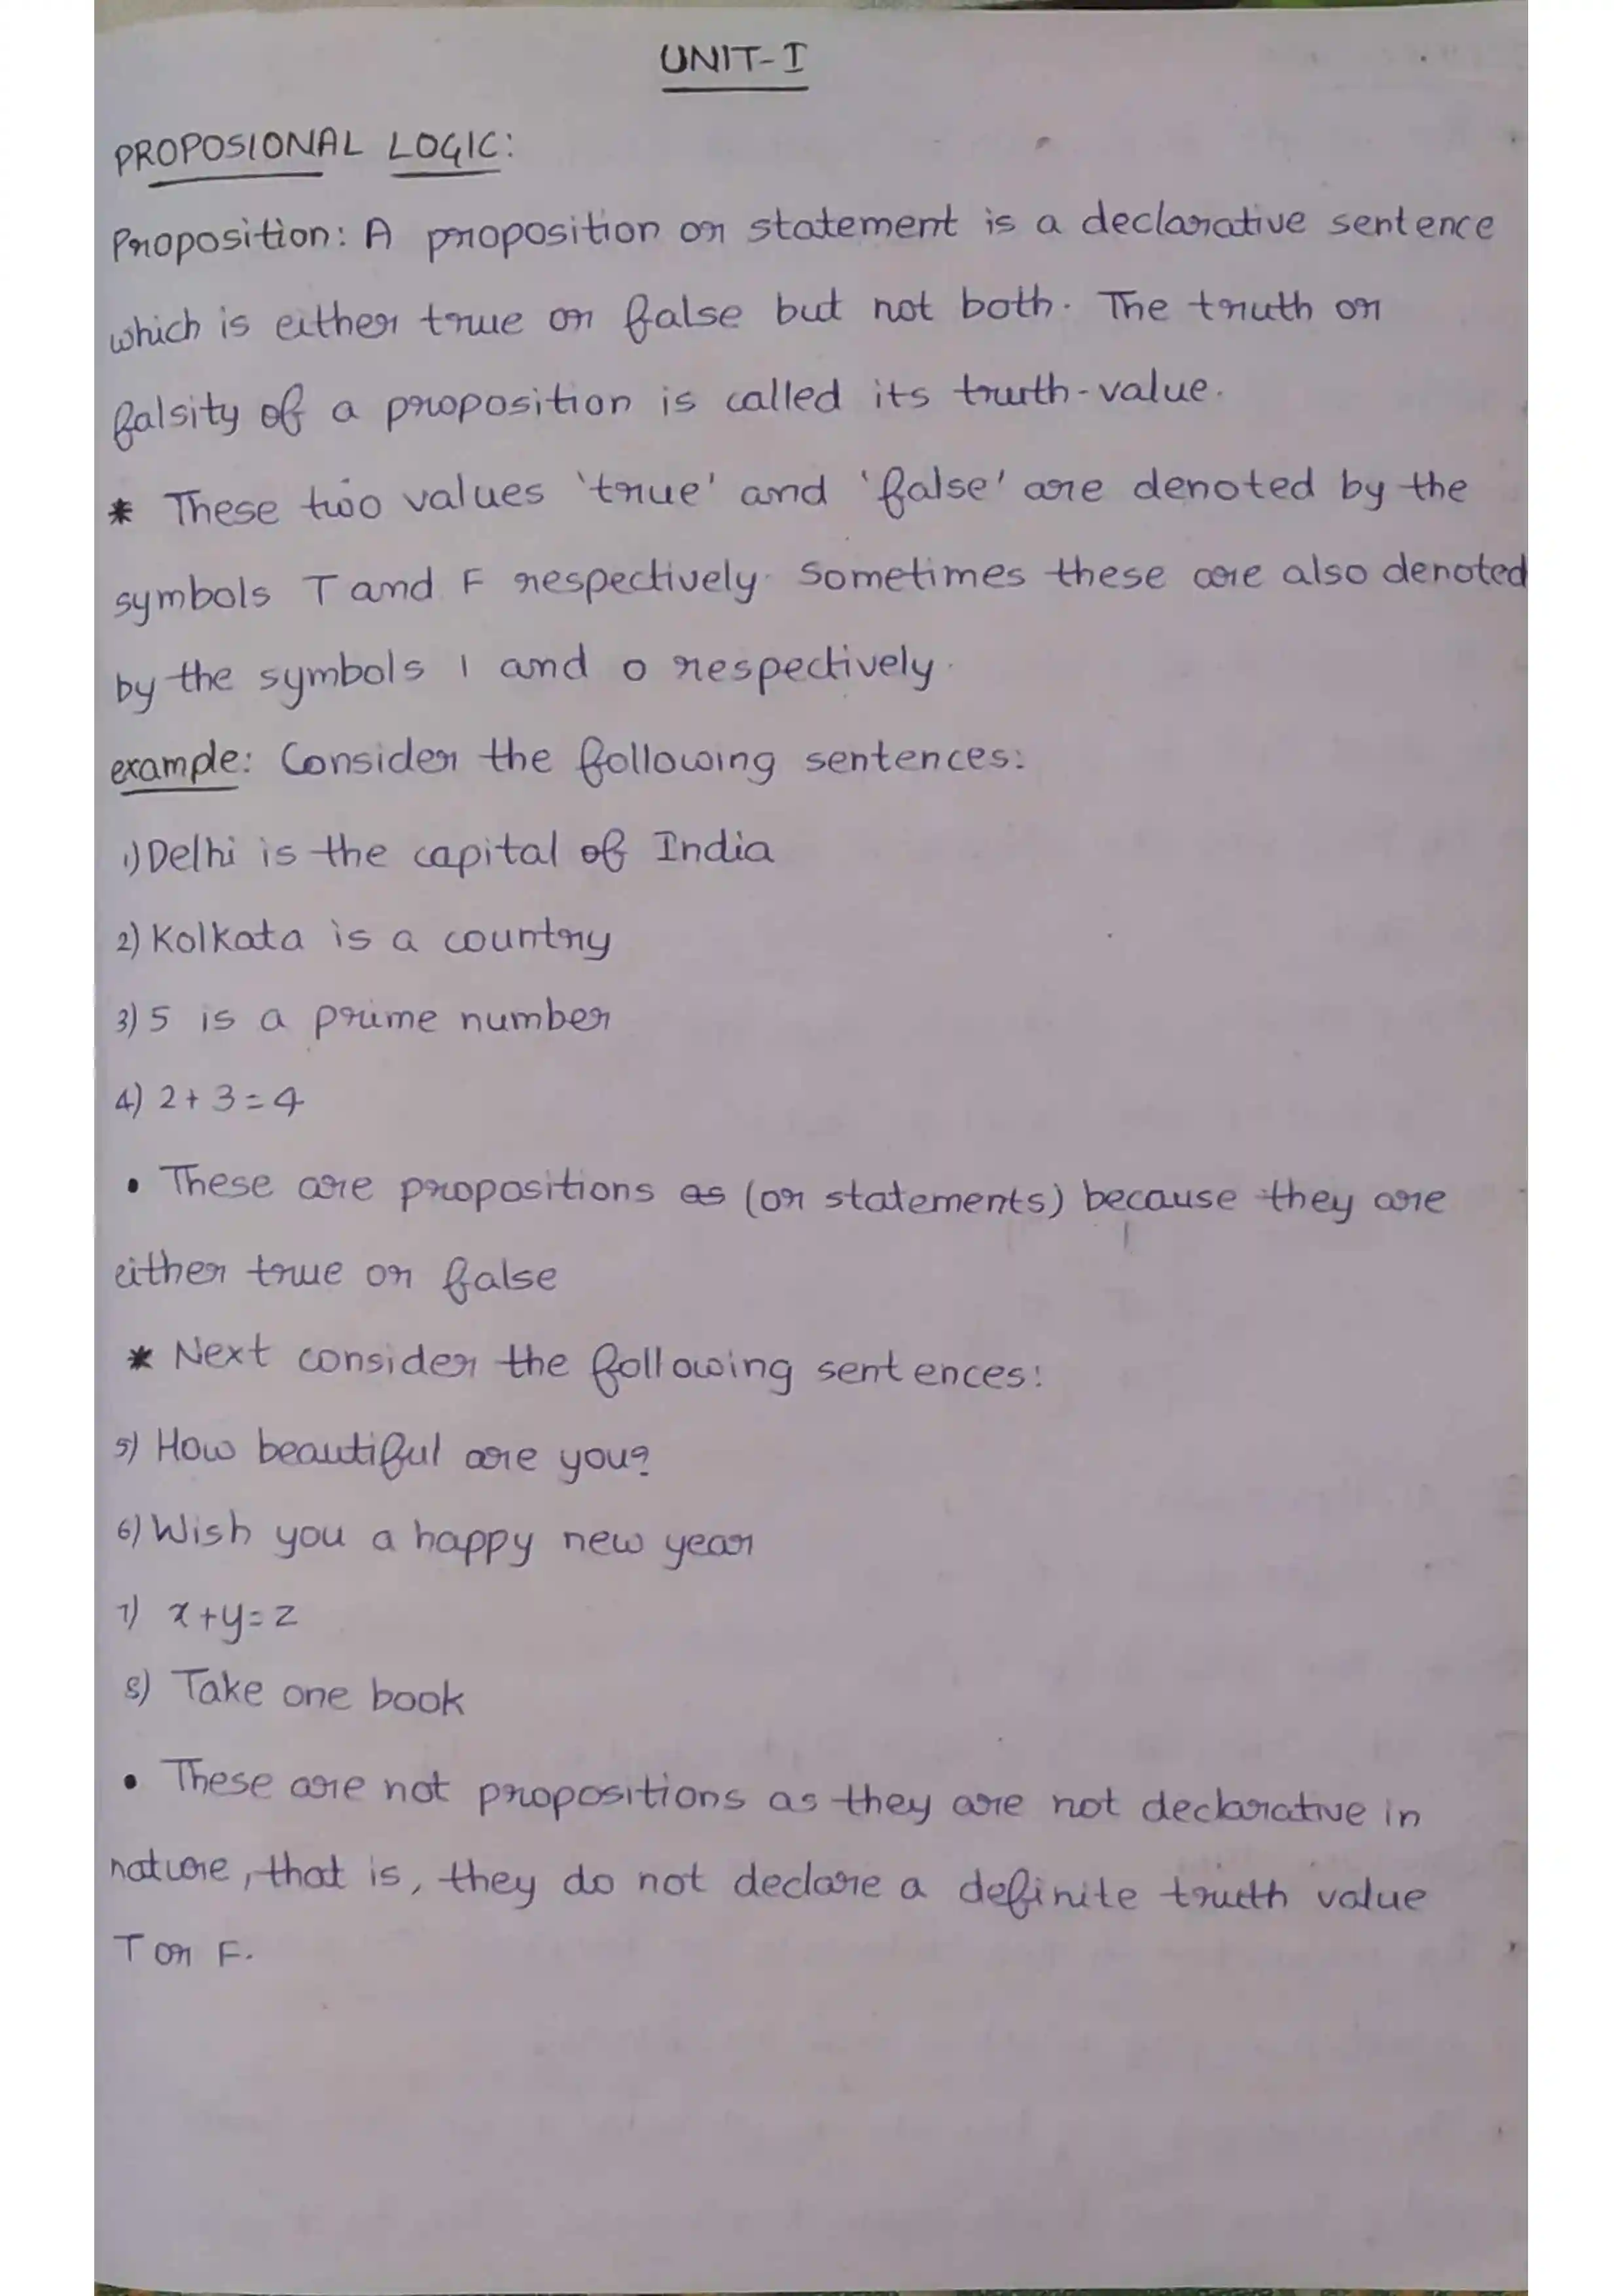 UNIT-I
PROPOSIONAL LOGIC:
Proposition: A proposition or statement is a declarative sentence
which is either true or false but not both. The truth or
falsity of a proposition is called its truth-value.
* These two values 'true' and 'false' are denoted by the
symbols T and F respectively. Sometimes these are also denoted
by the symbols 1 and 0 respectively.
example: Consider the following sentences:
1) Delhi is the capital of India
2) Kolkata is a country
3) 5 is a prime number
4) 2+3=4
• These are propositions as (or statements) because they are
either true or false
* Next consider the following sentences:
5) How beautiful are you?
6) Wish you a happy new year
7) x+y=z
8) Take one book
• These are not propositions as they are not declarative in
nature, that is, they do not declare a definite truth value
T or F.